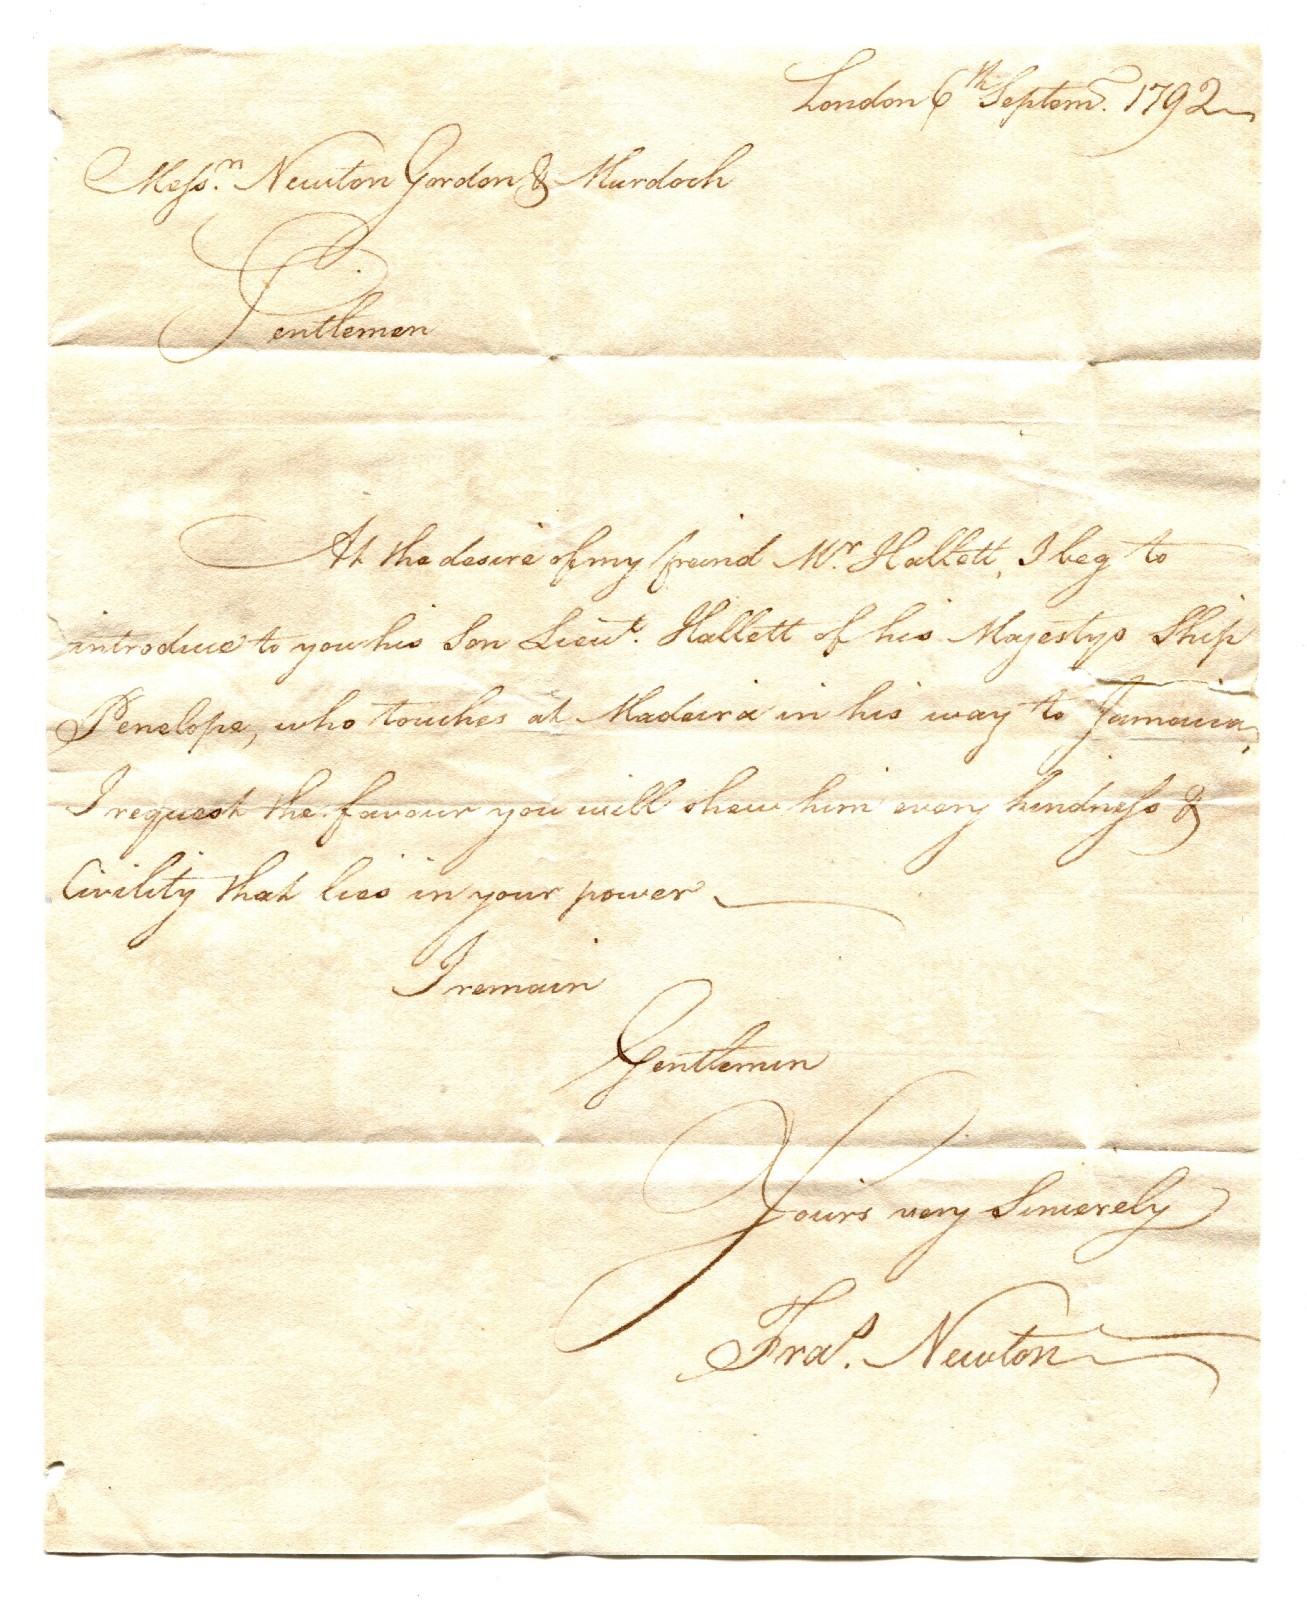 London 6th Septemr. 1792
Messrs. Newton Gordon & Murdoch
Gentlemen
At the desire of my freind Mr. Hallett, I beg to
introduce to you his Son Lieut. Hallett of his Majestys Ship
Penelope, who touches at Madeira in his way to Jamaica,
I request the favour you will shew him every kindness &
Civility that lies in your power
I remain
Gentlemen
Yours very Sincerely
Fras. Newton